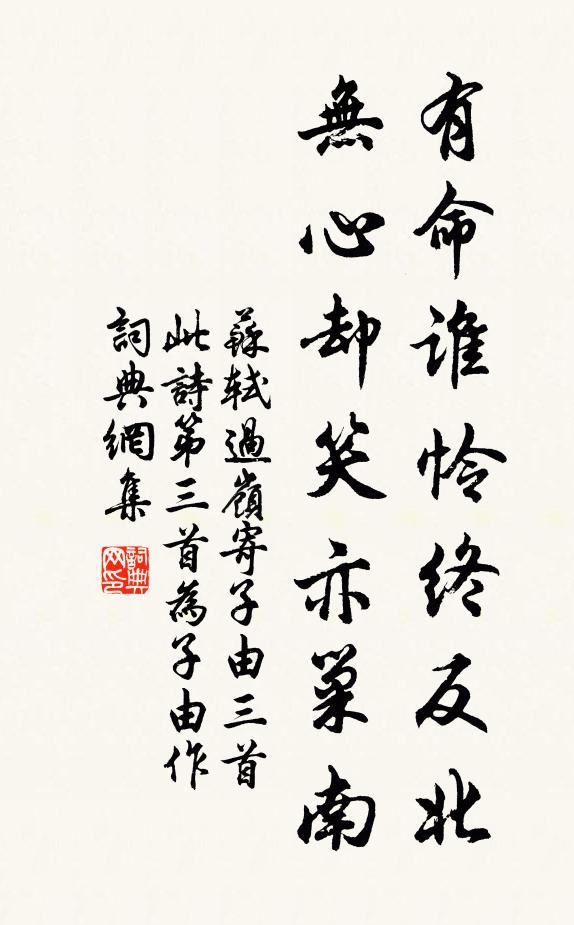 有命誰憐終反北
無心却笑亦巢南
蘇軾過嶺寄子由三首
此詩第三首為子由作
詞典網集
詞典网印